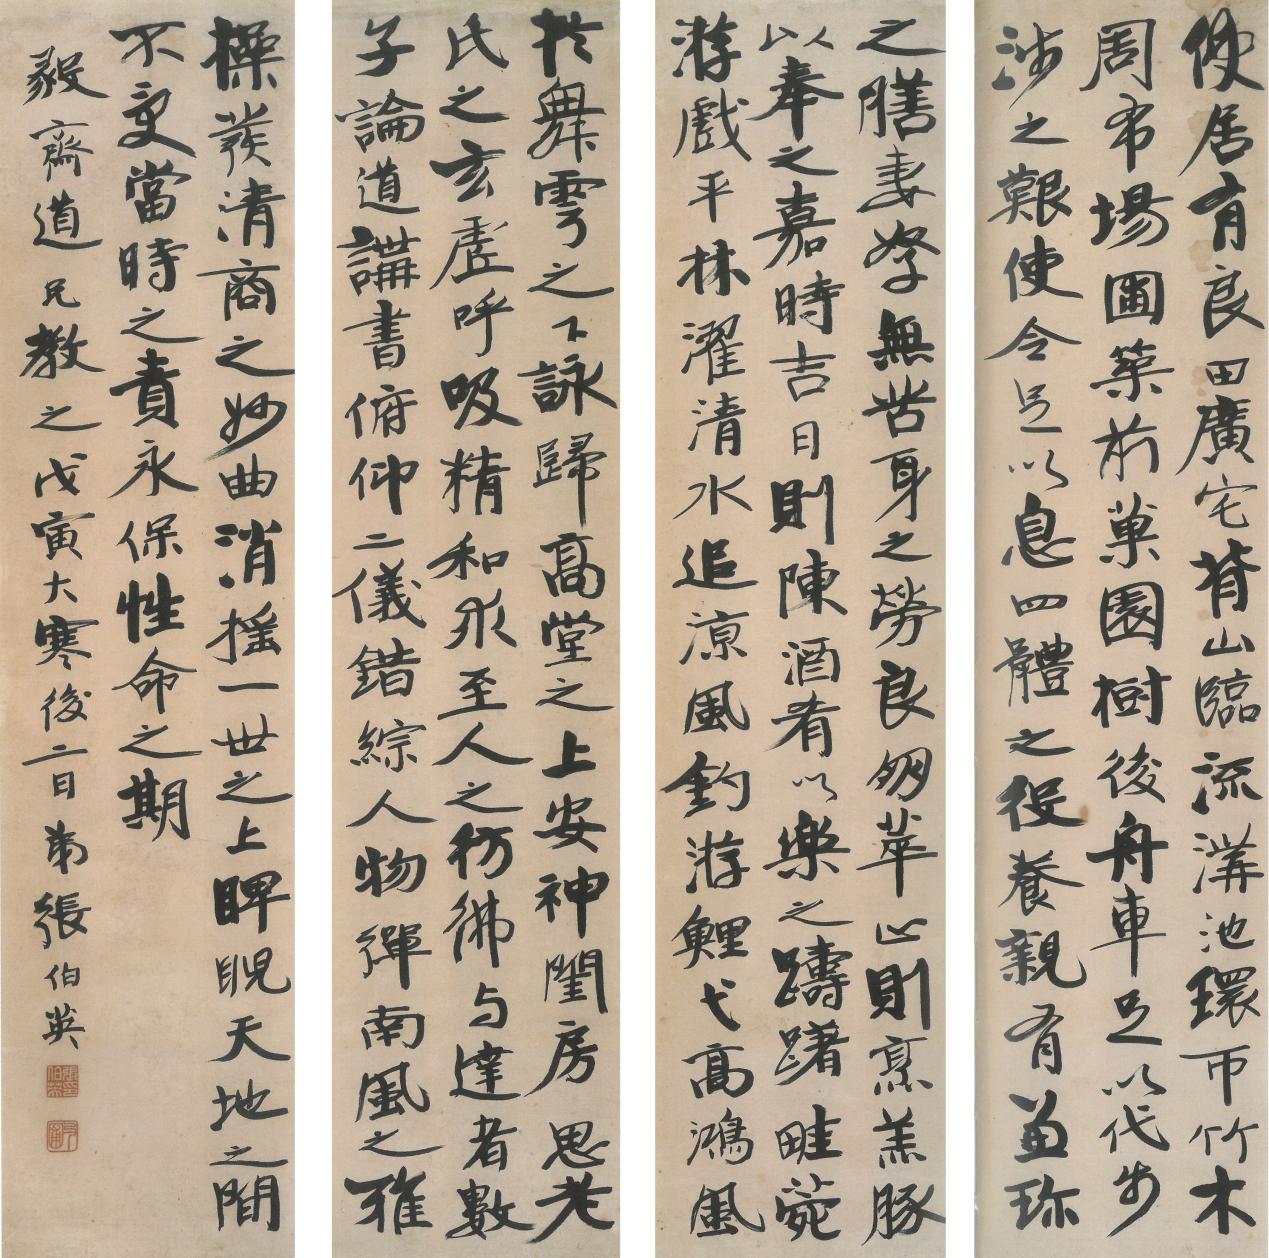 使居有良田廣宅背山臨流溝池環帀竹木
周布場圃築前菓園樹後舟車足以代步
涉之艱使令足以息四體之役養親有兼珍
之膳妻孥無苦身之勞良朋萃止則烹羔豚
以奉之嘉時吉日則陳酒肴以樂之躊躇畦菀
游戲平林濯清水追涼風釣游鯉弋高鴻風
於舞雩之下詠歸高堂之上安神閨房思老
氏之玄虛呼吸精和求至人之彷彿与達者數
子論道講書俯仰二儀錯綜人物彈南風之雅
操發清商之妙曲消搖一世之上睥睨天地之間
不受當時之責永保性命之期
毅齋道兄教之戊寅大寒後二日弟張伯英
張印伯英
勺圃